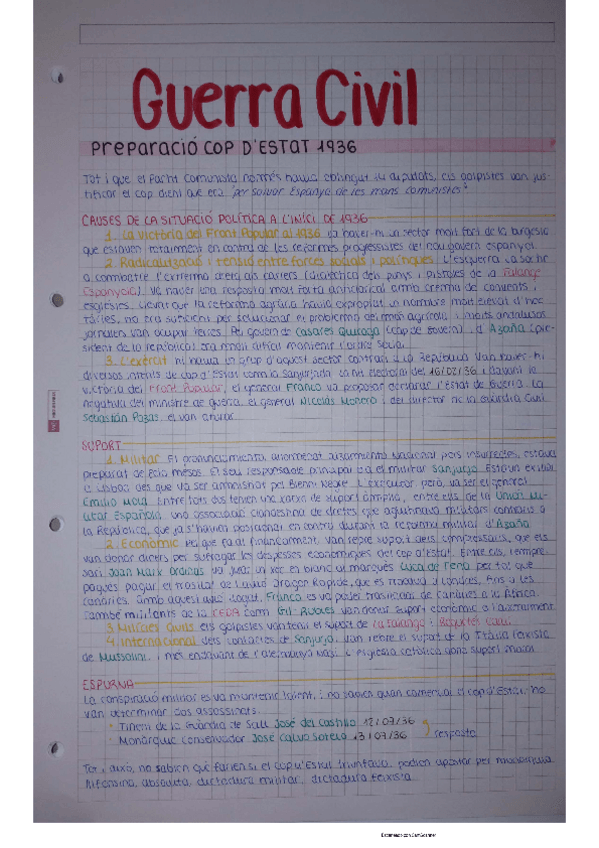 Guerra Civil
Preparació COP D'ESTAT 1936
Tot i que el Partit Comunista només havia obtingut 14 diputats, els golpistes van jus-
tificar el cop dient que era "per salvar Espanya de les mans comunistes"
CAUSES DE LA SITUACIÓ POLÍTICA A L'INICI DE 1936
1. La victòria del Front Popular al 1936 va haver-hi un sector molt fort de la burgesia
que estaven totalment en contra de les reformes progressistes del nou govern espanyol.
2. Radicalització i tensió entre forces socials i polítiques L'esquerra va sortir
a combatre l'extrema dreta als carrers (dialèctica dels punys i pistoles de la Falange
Espanyola). Va haver una resposta molt forta anticlerical amb crema de convents i
esglésies. Llevat que la reforma agrària havia expropiat un nombre molt elevat d'hec-
tàrees, no era suficient per solucionar el problema del món agrícola i molts andalusos
jornalers van ocupar terres. Pel govern de Casares Quiroga (cap de govern) i d'Azaña (pre-
sident de la república) era molt difícil mantenir l'ordre social.
3. L'exèrcit hi havia un grup d'aquest sector contrari a la República. Van haver-hi
diversos intents de cop d'Estat com la Sanjurjada. La nit electoral del 16/02/36 i davant la
victòria del Front Popular, el general Franco va proposar declarar l'Estat de Guerra. La
negativa del ministre de guerra, el general Nicolás Molero i del director de la Guàrdia Civil
Sebastián Pozas el van aturar.
SUPORT
1. Militar El pronunciamiento, anomenat alzamiento nacional pels insurrectes, estava
preparat de feia mesos. El seu responsable principal era el militar Sanjurjo. Estava exiliat
a Lisboa des que va ser amnistiat pel Bienni Negre. L'executor, però, va ser el general
Emilio Mola. Entre tots dos tenien una xarxa de suport àmplia, entre ells de la Unión Mi-
litar Española, una associació clandestina de dretes que aglutinava militars contraris a
la República, que ja s'havien posicionat en contra durant la reforma militar d'Azaña
2. Econòmic Pel que fa al finançament, van rebre suport dels empresaris, que els
van donar diners per sufragar les despeses econòmiques del cop d'Estat. Entre ells, l'empre-
sari Joan March Ordinas va fer un xec en blanc al marquès Luca de Tena per tal que
pagués pagar el trasllat de l'avió Dragon Rapide, que es trobava a Londres, fins a les
Canàries. Amb aquest avió llogat, Franco es va poder traslladar de Canàries a l'Àfrica.
També militants de la CEDA com Gil-Robles van donar suport econòmic a l'alzamiento.
3. Milícies civils els golpistes van tenir el suport de La Falange i Requetés Carl.
4. Internacional dels contactes de Sanjurjo van rebre el suport de la Itàlia feixista
de Mussolini, i més endavant de l'Alemanya nazi. L'església catòlica dona suport moral
ESPURNA
La conspiració militar es va mantenir latent, i no sabien quan començar el cop d'Estat. Ho
van determinar dos assassinats:
· Tinent de la Guàrdia de Salt José del Castillo 12/07/36
· Monàrquic conservador José Calvo Sotelo 13/07/36 resposta
Tot i això, no sabien què farien si el cop d'Estat triunfava, podien apostar per monarquia
Alfonsina, absoluta, dictadura militar, dictadura feixista.
Escaneado con CamScanner